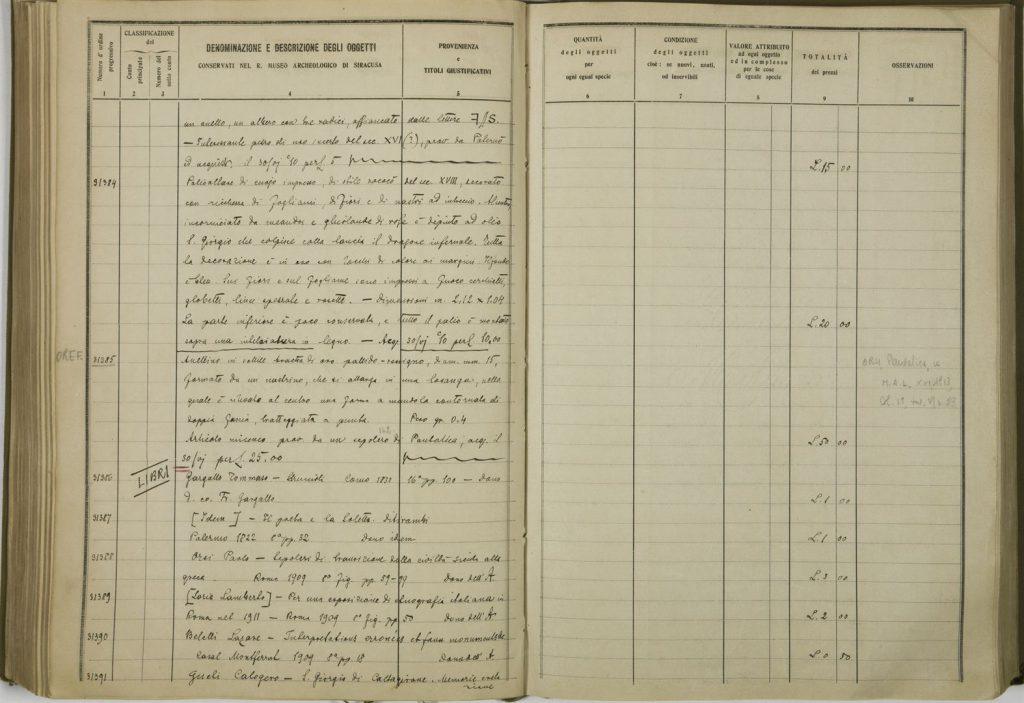 Numero d'ordine progressivo
CLASSIFICAZIONE
del
Conto principale
Numero del sotto conto
DENOMINAZIONE E DESCRIZIONE DEGLI OGGETTI
CONSERVATI NEL R. MUSEO ARCHEOLOGICO DI SIRACUSA
PROVENIENZA
e
TITOLI GIUSTIFICATIVI
1 2 3 4 5
un anello, un albero con tre radici, affiancato dalle lettere
— Interessante pezzo di uso incerto del sec. XVI (?), prov. da Palermo
il 30/vj per L. 5
31384
Paliotto altare di cuojo impresso, di stile rococò del sec. XVIII, decorato
con ricchezza di fogliami, di fiori e di nastri ad intreccio.
incorniciato da meandri e ghirlande di rose è dipinto ad olio
S. Giorgio che colpisce colla lancia il dragone infernale. Tutta
la decorazione è in oro con tocchi di colore ai margini.
Sui fiori e sul fogliame sono impressi a fuoco cerchietti,
globetti, linee spezzate e rosette. — Dimensioni m. 2.12 x 1.04
La parte inferiore è poco conservata, e tutto il palio è montato
sopra una intelaiatura in legno. — Acq. 30/vj per L. 10,00
OREF.
31385
Anellino in sottile bractea di oro pallido-rossigno, diam. mm. 15,
formato da un nastrino, che si allarga in una losanga, nella
quale è rilevato al centro una forma a mandola contornata di
doppia fascia, tratteggiata a punta. Peso gr. 0.4
Articolo miceneo prov. da un sepolcro di Pantalica, acq. il
30/vj per L. 25.00
LIBRI
31386
Gargallo Tommaso — Como 1830 16° pp. 100 — Dono
d. co. Fr. Gargallo
31387
[Idem] — Il poeta e la Toletta. Ditirambi
Palermo 1822 8° pp. 32 Dono idem
31388
Orsi Paolo — Sepolcri di transizione dalla civiltà sicula alla
greca. Roma 1909 8° fig. pp. 59-99 Dono dell'A.
31389
[Loria Lamberto] — Per una esposizione di etnografia italiana in
Roma nel 1911 — Roma 1909 8° fig. pp. 50 Dono dell'A
31390
Lazare — Interprétations erronées et faux monuments
Casal Montferrat 1909 8° pp. 18 Dono dell'A
31391
Gueli Calogero — S. Giorgio di Caltagirone. Memorie
QUANTITÀ
degli oggetti
per
ogni egual specie
CONDIZIONE
degli oggetti
cioè: se nuovi, usati,
od inservibili
VALORE ATTRIBUITO
ad ogni oggetto
ed in complesso
per le cose
di eguale specie
TOTALITÀ
dei prezzi
OSSERVAZIONI
6 7 8 9 10
L. 15 00
L. 20 00
Orsi, Pantalica, in
M.A.L.
L. 50 00
L. 1 00
L. 1 00
L. 3 00
L. 2 00
L. 0 50